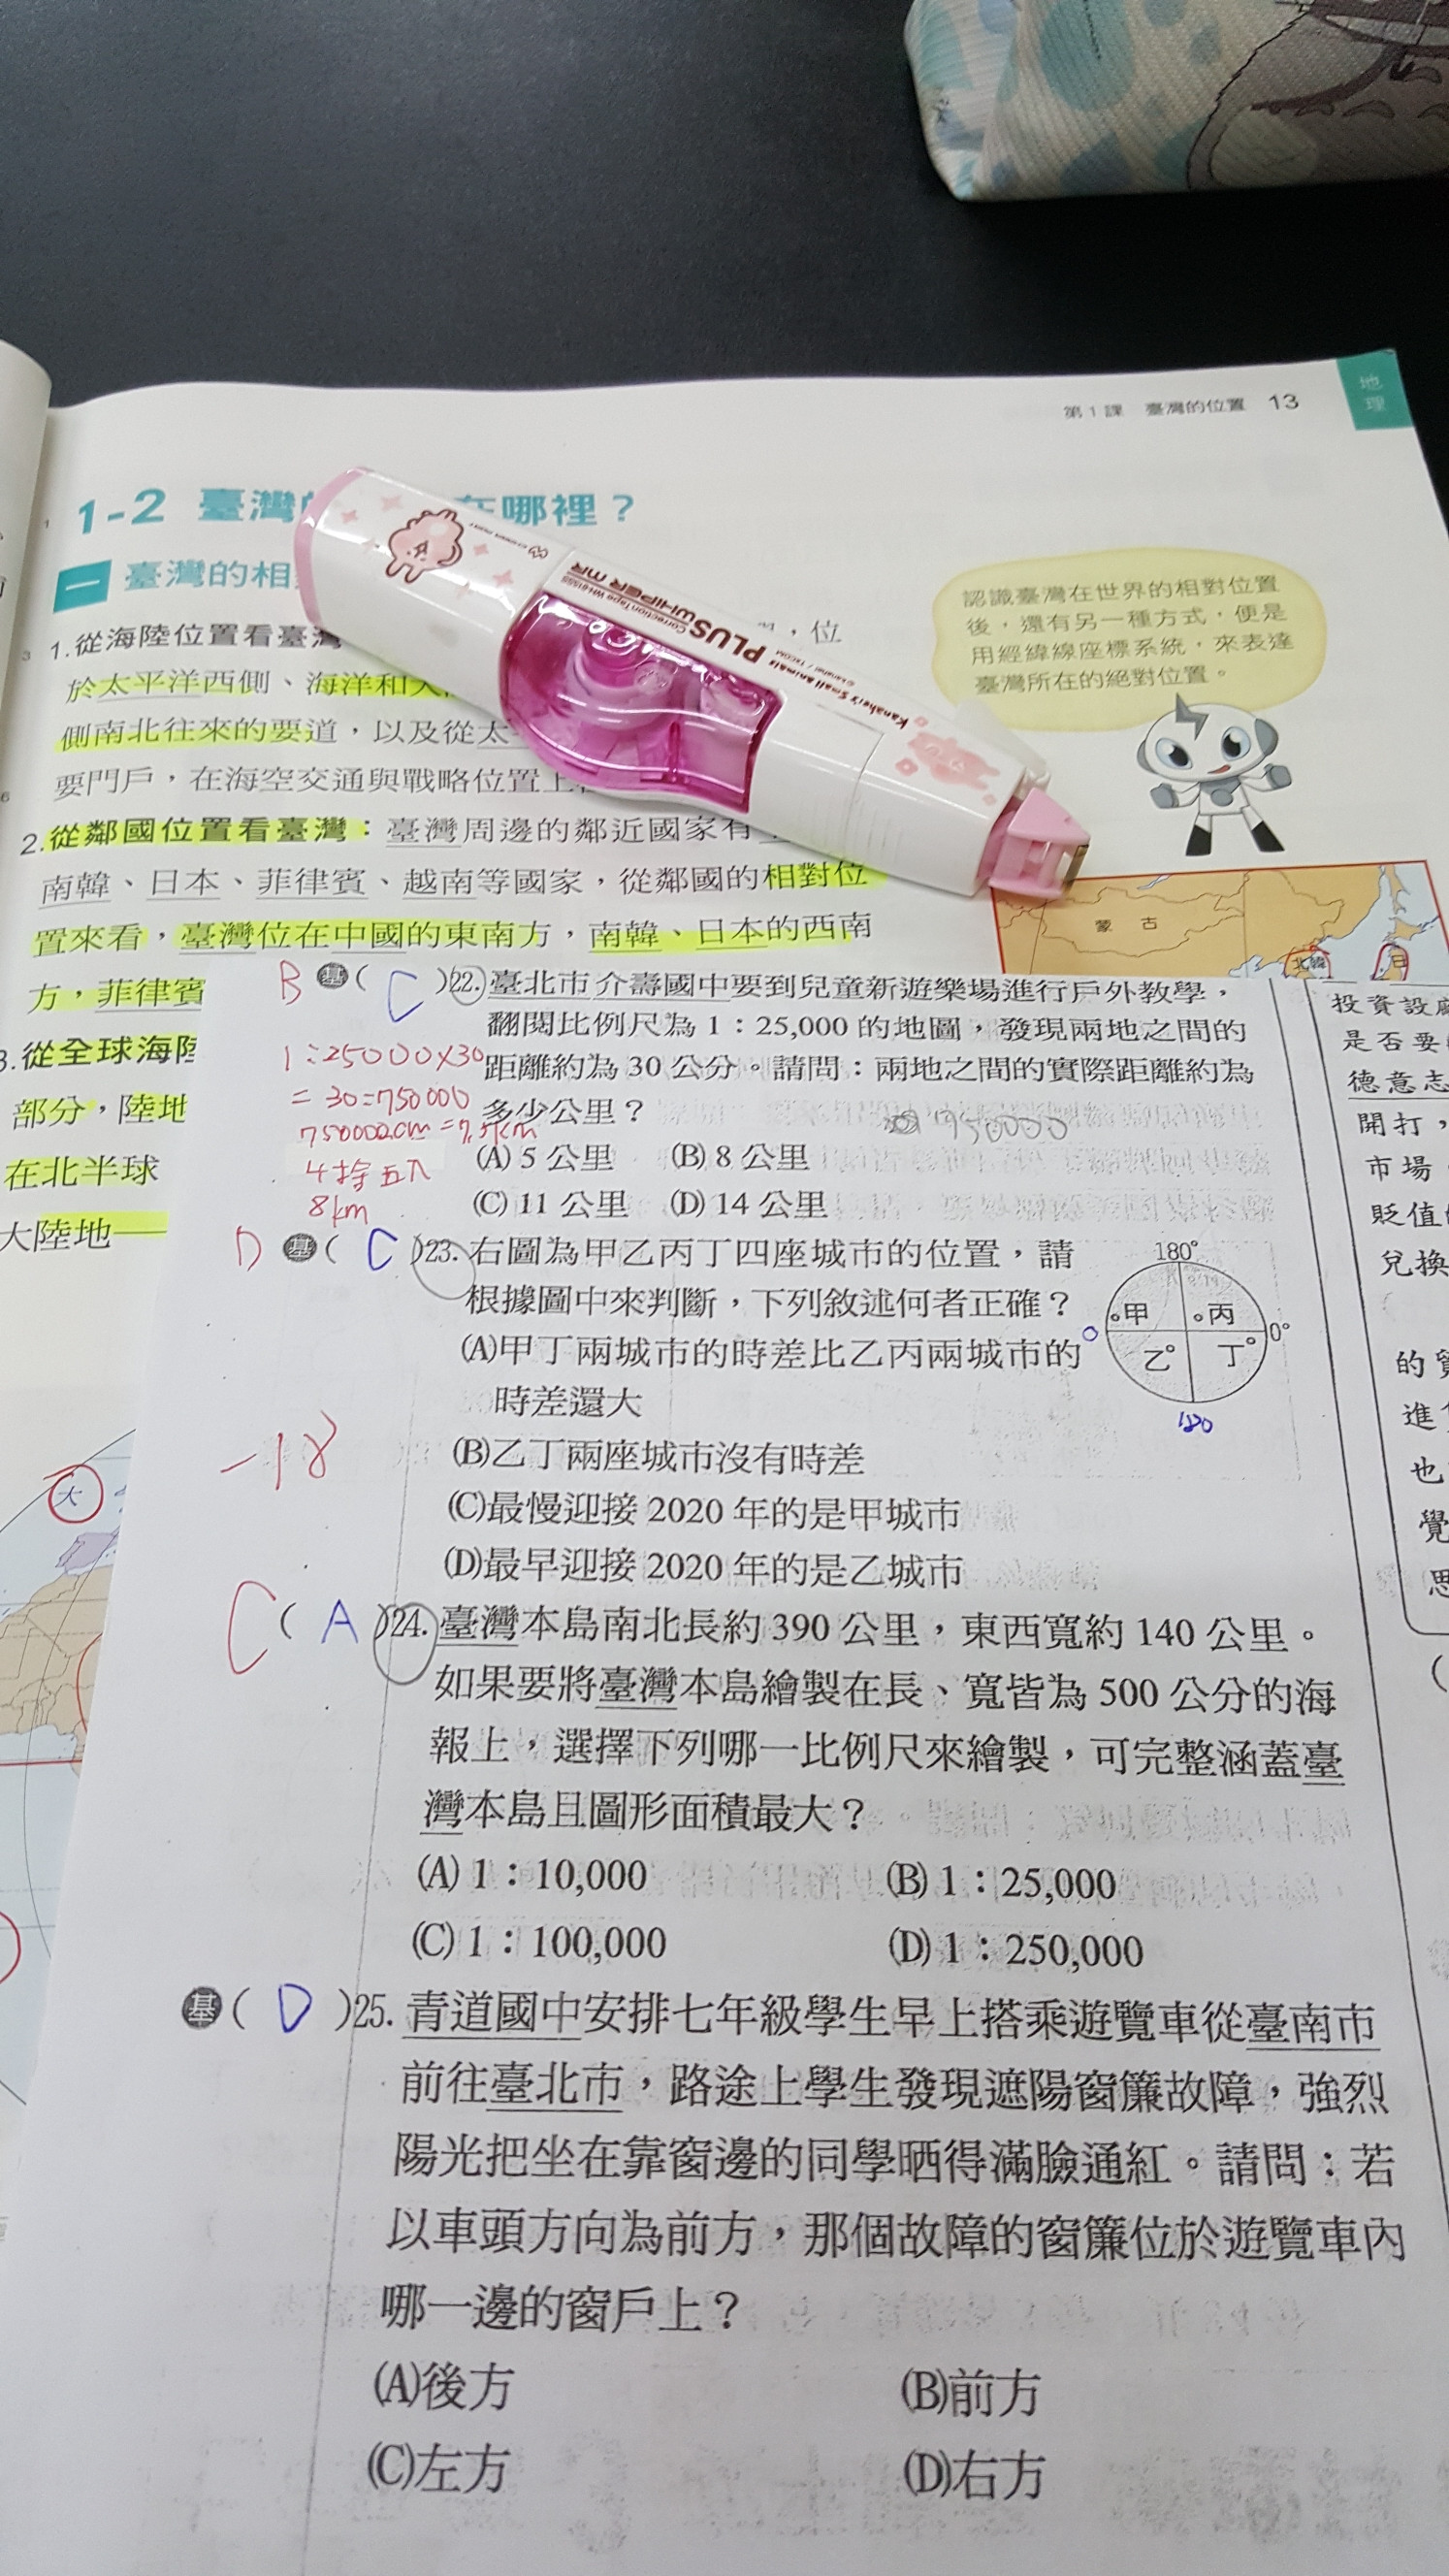 第1課 臺灣的位置 13
地理
1-2 臺灣 在哪裡？
一 臺灣的相
1.從海陸位置看臺灣
，位
於太平洋西側、海洋和大
側南北往來的要道，以及從太
要門戶，在海空交通與戰略位置上
2.從鄰國位置看臺灣：臺灣周邊的鄰近國家有
南韓、日本、菲律賓、越南等國家，從鄰國的相對位
置來看，臺灣位在中國的東南方，南韓、日本的西南
方，菲律賓
3.從全球海陸
部分，陸地
在北半球
大陸地——
認識臺灣在世界的相對位置
後，還有另一種方式，便是
用經緯線座標系統，來表達
臺灣所在的絕對位置。
PLUS WHIPER MR
Correction Tape
Kanahei's Small animals
蒙古
北韓
日
大
B 基( C )22.臺北市介壽國中要到兒童新遊樂場進行戶外教學，
翻閱比例尺為 1：25,000 的地圖，發現兩地之間的
距離約為 30 公分。請問：兩地之間的實際距離約為
多少公里？
(A) 5 公里 (B) 8 公里
(C) 11 公里 (D) 14 公里
1:25000×30
=30:750000
750000cm=7.5km
4捨五入
8km
750000
D 基( C )23.右圖為甲乙丙丁四座城市的位置，請
根據圖中來判斷，下列敘述何者正確？
(A)甲丁兩城市的時差比乙丙兩城市的
時差還大
(B)乙丁兩座城市沒有時差
(C)最慢迎接 2020 年的是甲城市
(D)最早迎接 2020 年的是乙城市
180°
甲 丙
0 0°
乙 丁
180
-18
C ( A )24.臺灣本島南北長約 390 公里，東西寬約 140 公里。
如果要將臺灣本島繪製在長、寬皆為 500 公分的海
報上，選擇下列哪一比例尺來繪製，可完整涵蓋臺
灣本島且圖形面積最大？
(A) 1：10,000 (B) 1：25,000
(C) 1：100,000 (D) 1：250,000
基( D )25.青道國中安排七年級學生早上搭乘遊覽車從臺南市
前往臺北市，路途上學生發現遮陽窗簾故障，強烈
陽光把坐在靠窗邊的同學晒得滿臉通紅。請問：若
以車頭方向為前方，那個故障的窗簾位於遊覽車內
哪一邊的窗戶上？
(A)後方 (B)前方
(C)左方 (D)右方
投資設廠
是否要
德意志
開打，
市場
貶值
兌換
的貿
進
也
覺
思